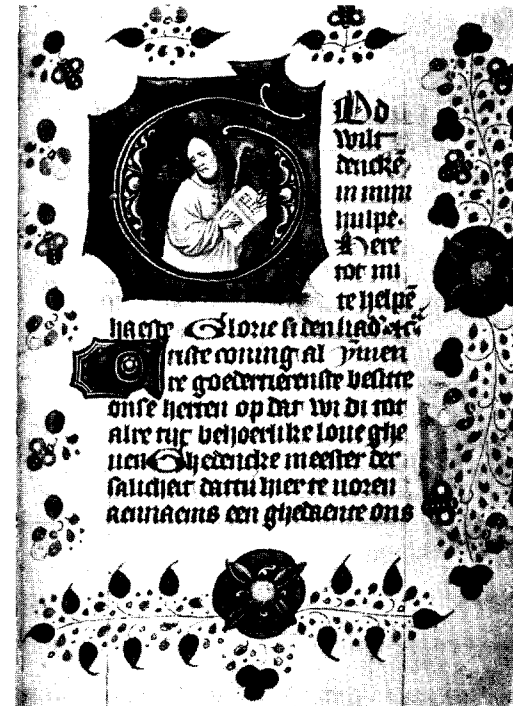 God
wilt
denckē
in mijn
hulpe.
Here
tot mi
te helpē
haeste Glorie si den vad'
riste coning al
te goedertierenste besitte
onse herten op dat wi di tot
alre tijt behoerlike loue ghe
uen Ghedencke meester der
salicheit dattu hier te uoren
aennaems een ghedaente ons